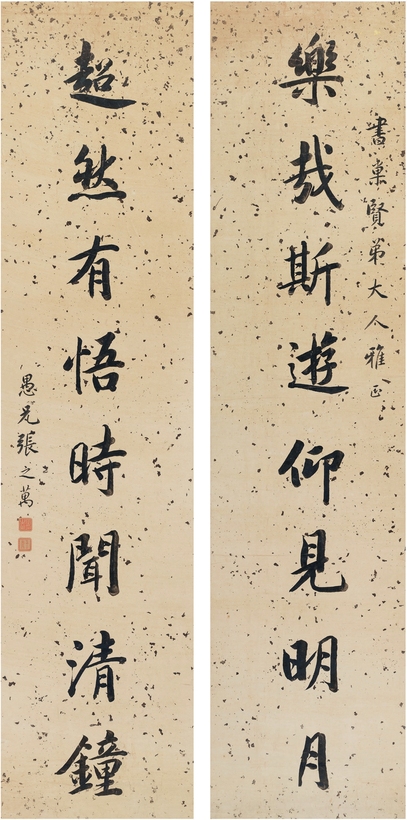 書巢賢弟大人雅正
樂哉斯遊仰見明月
超然有悟時聞清鐘
愚兄張之萬